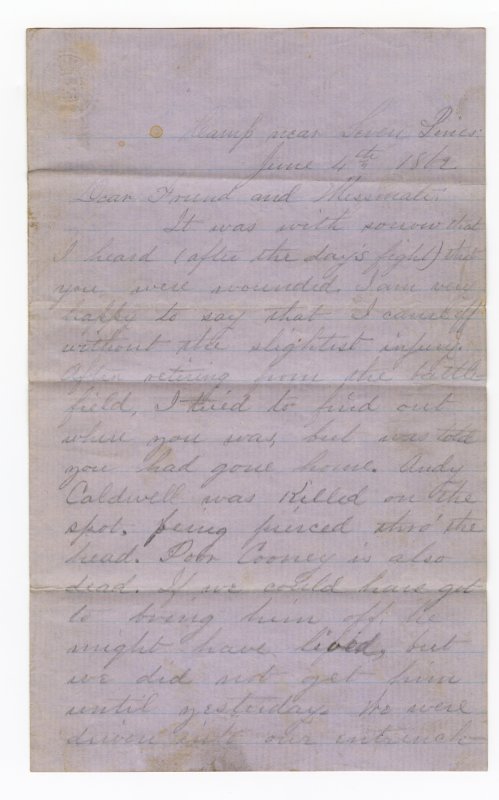 Camp near Seven Pines.
June 4th 1862
Dear Friend and Messmate;
It was with sorrow that
I heard (after the day's fight) that
you were wounded. I am very
happy to say that I came off
without the slightest injury.
After retiring from the battle
field, I tried to find out
where you was, but was told
you had gone home. Andy
Caldwell was killed on the
spot. being pierced thro' the
head. Poor Cooney is also
dead. If we could have got
to bring him off, he
might have lived, but
we did not get him
until yesterday. We were
driven into our intrench-